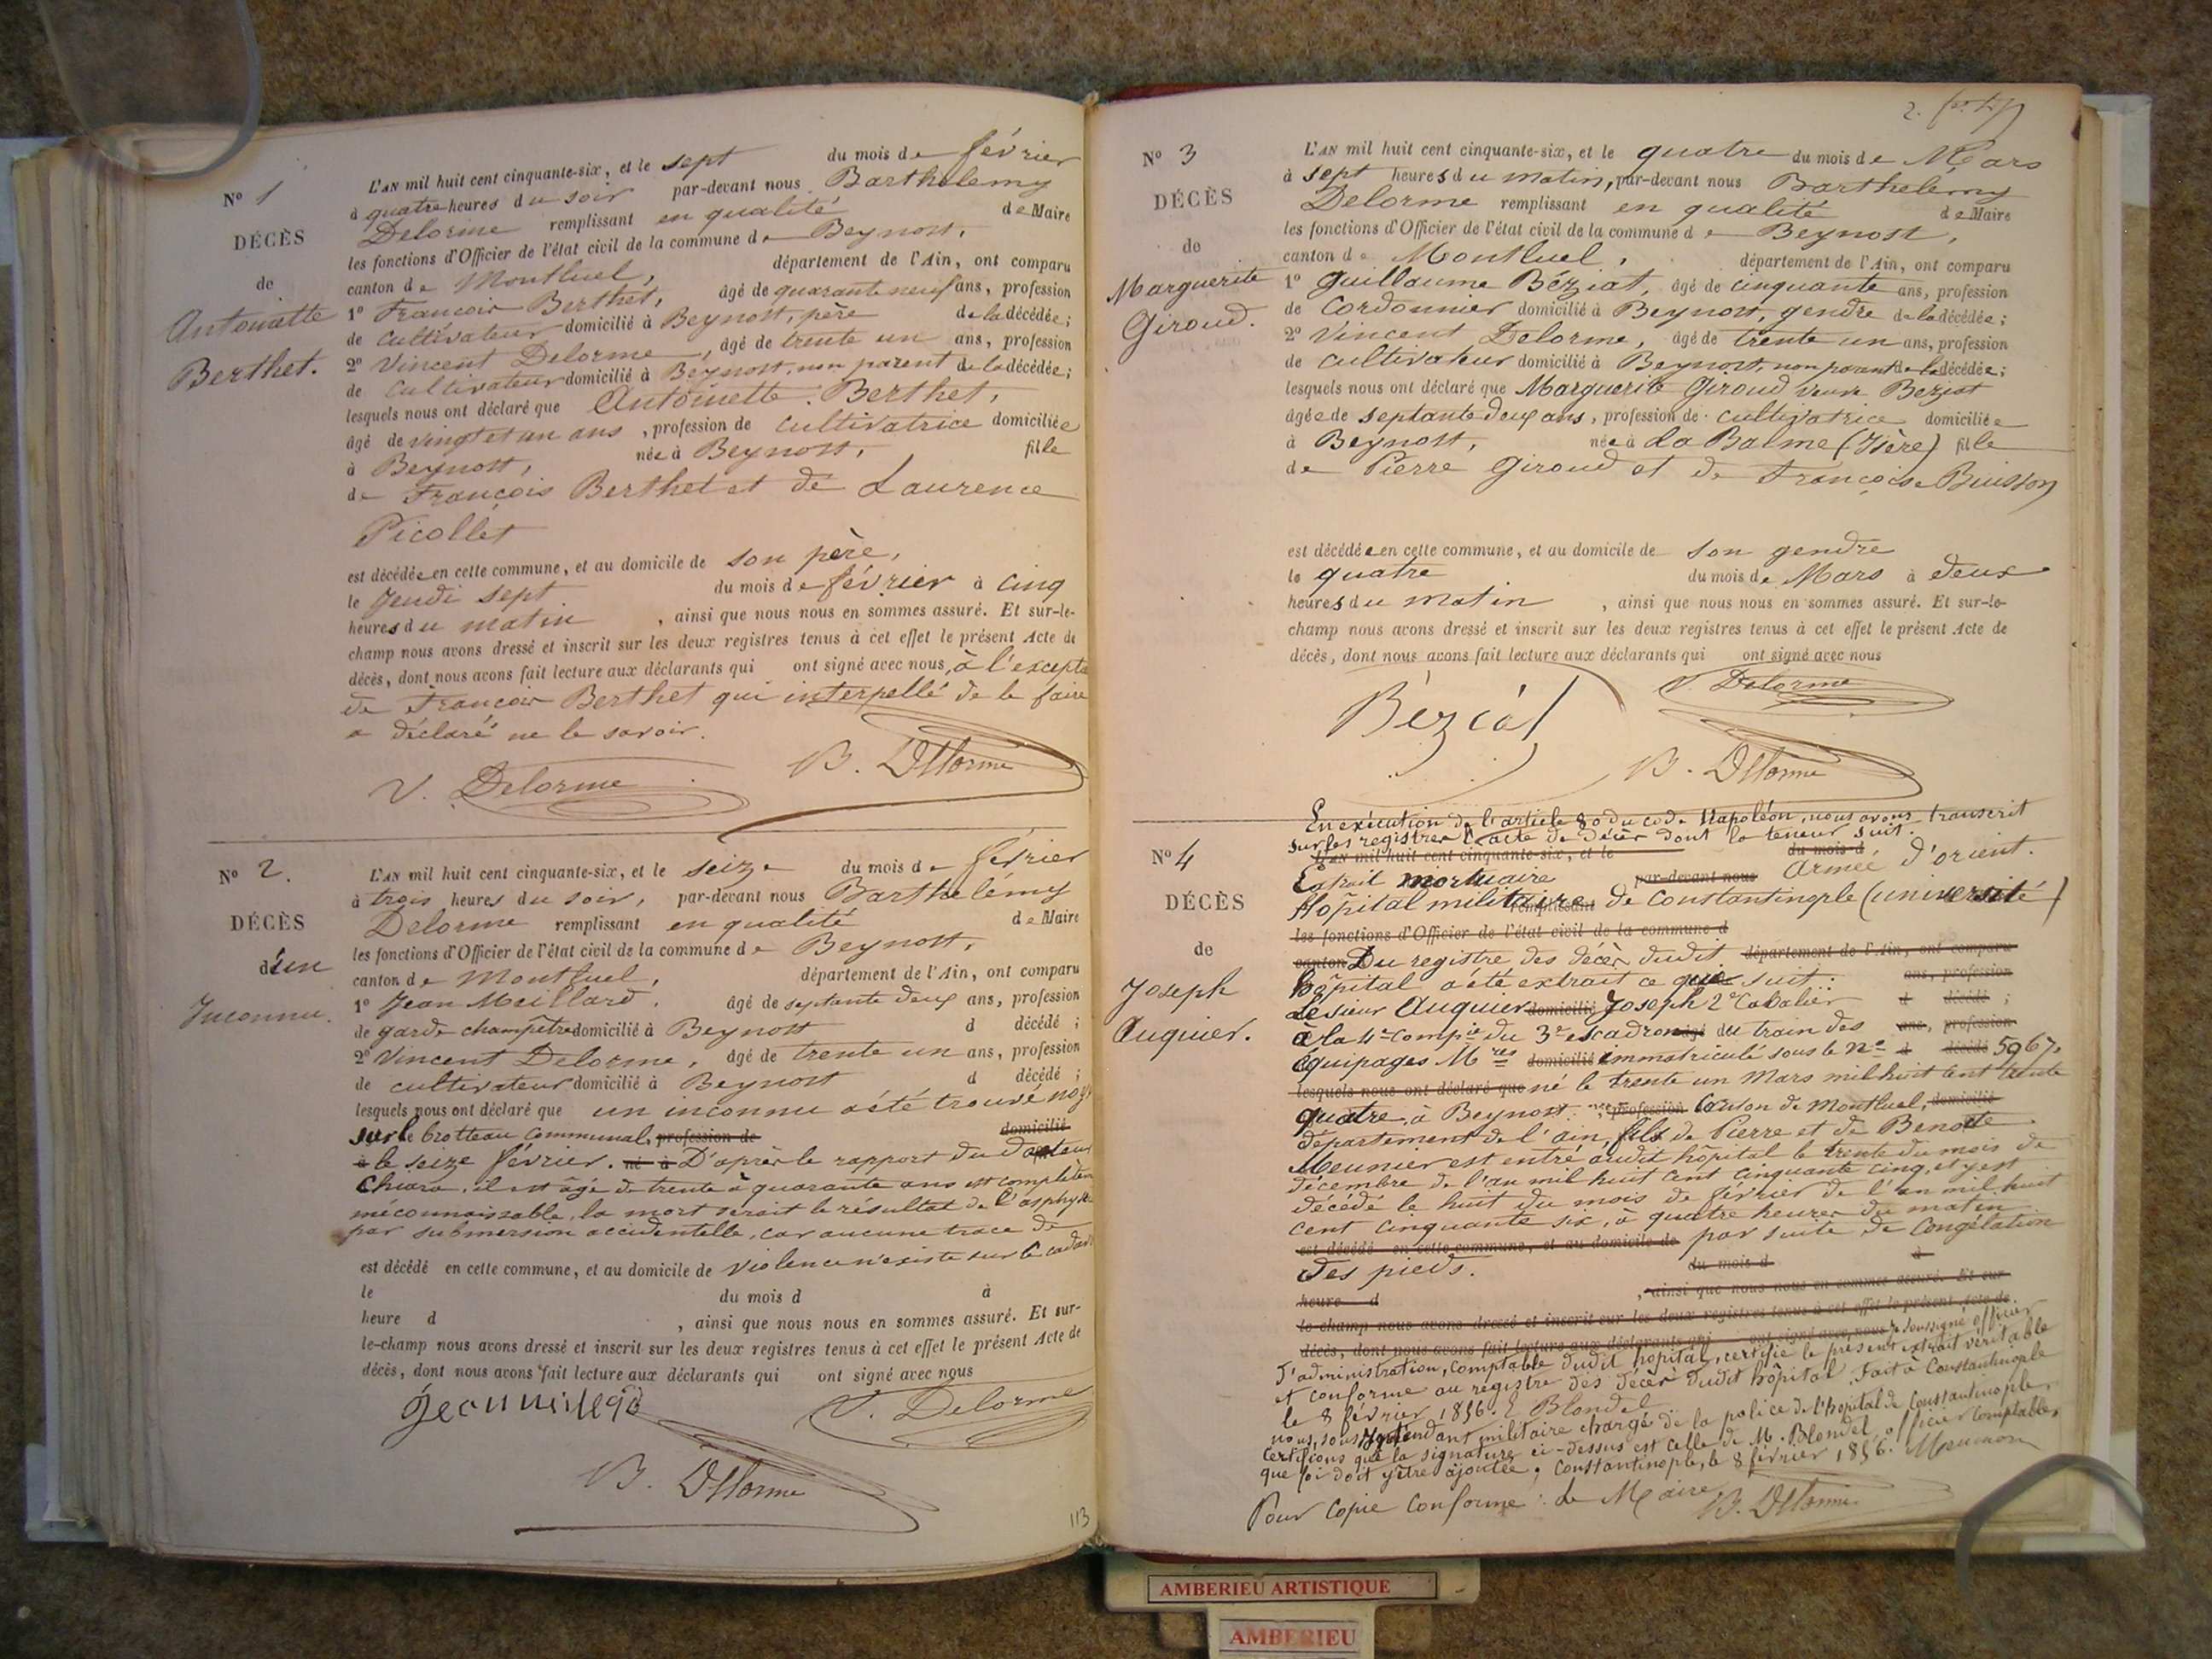 Nº 1
DÉCÈS
de
Antoinette
Berthet.
L'AN mil huit cent cinquante-six, et le sept du mois de février
à quatre heures du soir par-devant nous Barthelemy
Delorme remplissant en qualité de Maire
les fonctions d'Officier de l'état civil de la commune de Beynost,
canton de Montluel, département de l'Ain, ont comparu
1º Francois Berthet, âgé de quarante neuf ans, profession
de cultivateur domicilié à Beynost, père de la décédée;
2º Vincent Delorme, âgé de trente un ans, profession
de cultivateur domicilié à Beynost, non parent de la décédée;
lesquels nous ont déclaré que Antoinette Berthet,
âgé de vingt et un ans, profession de cultivatrice domiciliée
à Beynost, née à Beynost, fille
de François Berthet et de Laurence
Picollet
est décédée en cette commune, et au domicile de son père,
le Jeudi sept du mois de février à cinq
heures du matin, ainsi que nous nous en sommes assuré. Et sur-le-
champ nous avons dressé et inscrit sur les deux registres tenus à cet effet le présent Acte de
décès, dont nous avons fait lecture aux déclarants qui ont signé avec nous, à l'excepta
de Francois Berthet qui interpellé de le faire
a déclaré ne le savoir.
V. Delorme B. Delorme
Nº 2.
DÉCÈS
d'un
Inconnu.
L'AN mil huit cent cinquante-six, et le seize du mois de février
à trois heures du soir, par-devant nous Barthelémy
Delorme remplissant en qualité de Maire
les fonctions d'Officier de l'état civil de la commune de Beynost,
canton de Montluel, département de l'Ain, ont comparu
1º Jean Meillard. âgé de septante deux ans, profession
de garde champêtre domicilié à Beynost d décédé ;
2º Vincent Delorme, âgé de trente un ans, profession
de cultivateur domicilié à Beynost d décédé ;
lesquels nous ont déclaré que un inconnu a été trouvé noyé
sur le brotteau communal, profession de domicilié
à le seize février. né à D'après le rapport du docteur
Chiara, il est âgé de trente à quarante ans est complètem
méconnaissable, la mort serait le résultat de l'asphyxie
par submersion accidentelle, car aucune trace de
est décédé en cette commune, et au domicile de violence n'existe sur le cadavre
le du mois d à
heure d , ainsi que nous nous en sommes assuré. Et sur-
le-champ nous avons dressé et inscrit sur les deux registres tenus à cet effet le présent Acte de
décès, dont nous avons fait lecture aux déclarants qui ont signé avec nous
V. Delorme
B. Delorme
113
Nº 3
DÉCÈS
de
Marguerite
Giroud.
L'AN mil huit cent cinquante-six, et le quatre du mois de Mars
à sept heures du matin, par-devant nous Barthelemy
Delorme remplissant en qualité de Maire
les fonctions d'Officier de l'état civil de la commune de Beynost,
canton de Montluel, département de l'Ain, ont comparu
1º Guillaume Béziat, âgé de cinquante ans, profession
de Cordonnier domicilié à Beynost, gendre de la décédée;
2º Vincent Delorme, âgé de trente un ans, profession
de cultivateur domicilié à Beynost, non parent de la décédée;
lesquels nous ont déclaré que Marguerite Giroud veuve Beziat
âgée de septante deux ans, profession de cultivatrice domiciliée
à Beynost, née à La Balme (Isère) fille
de Pierre Giroud et de Françoise Buisson
est décédée en cette commune, et au domicile de son gendre
le quatre du mois de Mars à deux
heures du matin, ainsi que nous nous en sommes assuré. Et sur-le-
champ nous avons dressé et inscrit sur les deux registres tenus à cet effet le présent Acte de
décès, dont nous avons fait lecture aux déclarants qui ont signé avec nous
Béziat V. Delorme
B. Delorme
Nº 4
DÉCÈS
de
Joseph
Auquier.
En exécution de l'article 80 du code Napoléon, nous avons transcrit
sur les registres l'acte de décès dont la teneur suit.
L'AN mil huit cent cinquante-six, et le du mois d
Extrait mortuaire par-devant nous Armée d'orient.
Hopital militaire remplissant de Constantinople (université)
les fonctions d'Officier de l'état civil de la commune d
canton Du registre des décès dudit département de l'Ain, ont comparu
hôpital a été extrait ce que suit : ans, profession
Le sieur Auquier domicilié Joseph 2e Cavalier d décédé ;
à la 4e compie du 3e escadron âgé du train des ans, profession
équipages Mres domicilié immatriculé sous le nº d décédé 5967.
lesquels nous ont déclaré que né le trente un Mars mil huit cent trente
quatre, à Beynost. profession Canton de Montluel, domicilié
département de l'ain, fils de Pierre et de Benoite
Meunier est entré audit hôpital le trente du mois de
décembre de l'an mil huit cent cinquante cinq, et y est
décédé le huit du mois de février de l'an mil huit
cent cinquante six, à quatre heures du matin
est décédé en cette commune, et au domicile de par suite de congélation
des pieds. du mois d à
heure d , ainsi que nous nous en sommes assuré. Et sur-
le-champ nous avons dressé et inscrit sur les deux registres tenus à cet effet le présent Acte de
décès, dont nous avons fait lecture aux déclarants qui ont signé avec nous Je soussigné officier
d'administration, comptable dudit hopital, certifie le présent extrait véritable
et conforme au registre des décès dudit hôpital. Fait à Constantinople
le 8 février 1856. Blondel
nous, sous Intendant militaire chargé de la police de l'hopital de Constantinople,
certifions que la signature ci-dessus est celle de M. Blondel officier comptable,
que foi doit y être ajoutée, Constantinople, le 8 février 1856.
Pour copie conforme : Le Maire B. Delorme
AMBERIEU ARTISTIQUE
AMBERIEU